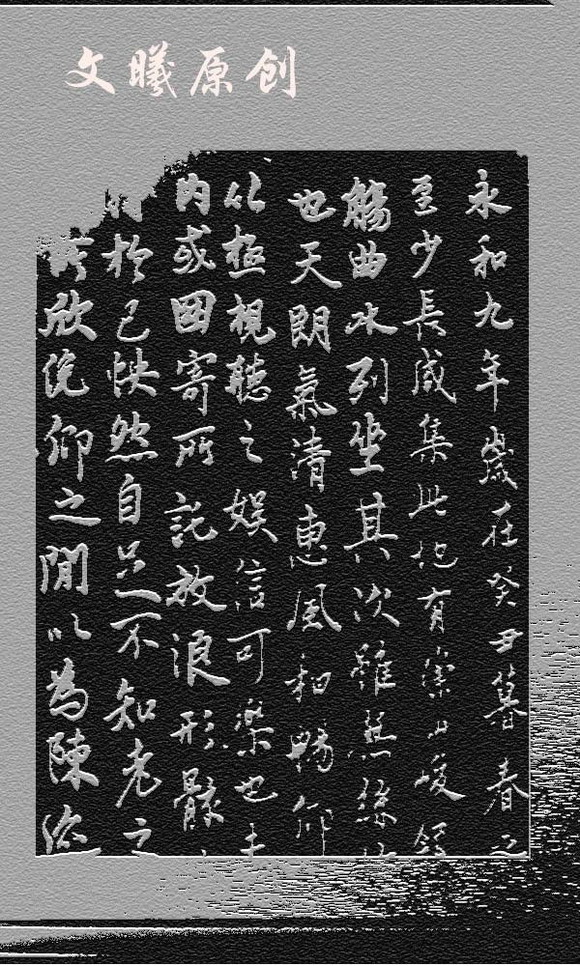 文曦原创
永和九年歲在癸丑暮春之
至少長咸集此地有崇山峻
觴曲水列坐其次雖無絲
也天朗氣清惠風和暢仰
以極視聽之娛信可樂也夫
內或因寄所託放浪形骸
於己怏然自足不知老之
欣俛仰之閒以為陳迹